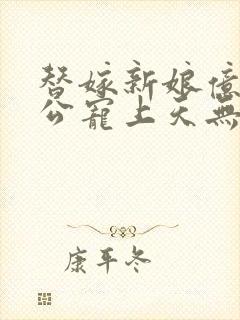 替嫁新娘億
公寵上天無
康平冬